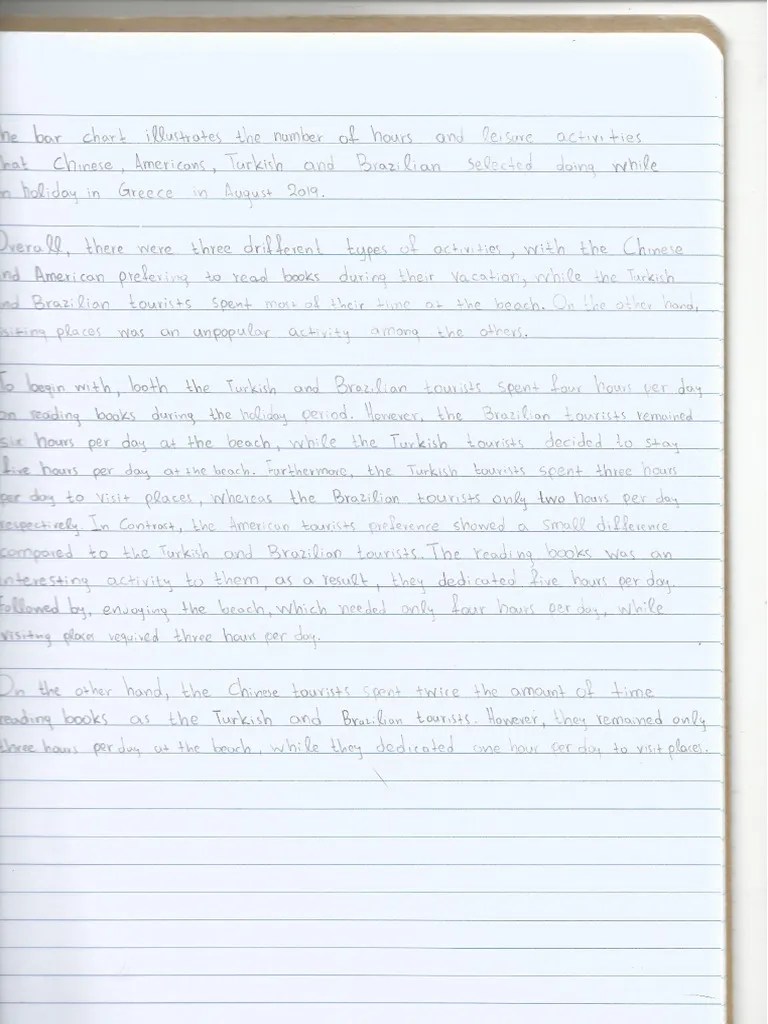 he bar chart illustrates the number of hours and leisure activities
hat Chinese, Americans, Turkish and Brazilian selected doing while
n holiday in Greece in August 2019.
Overall, there were three drifferent types of activities, with the Chinese
nd American prefering to read books during their vacation, while the Turkish
nd Brazilian tourists spent most of their time at the beach. On the other hand,
isiting places was an unpopular activity among the others.
To begin with, both the Turkish and Brazilian tourists spent four hours per day
on reading books during the holiday period. However, the Brazilian tourists remained
six hours per day at the beach, while the Turkish tourists decided to stay
five hours per day at the beach. Furthermore, the Turkish tourists spent three hours
per day to visit places, whereas the Brazilian tourists only two hours per day
respectively. In Contrast, the American tourists preference showed a small difference
compared to the Turkish and Brazilian tourists. The reading books was an
interesting activity to them, as a result, they dedicated five hours per day.
Followed by, enjoying the beach, which needed only four hours per day, while
visiting places required three hours per day.
On the other hand, the Chinese tourists spent twice the amount of time
reading books as the Turkish and Brazilian tourists. However, they remained only
three hours per day at the beach, while they dedicated one hour per day to visit places.